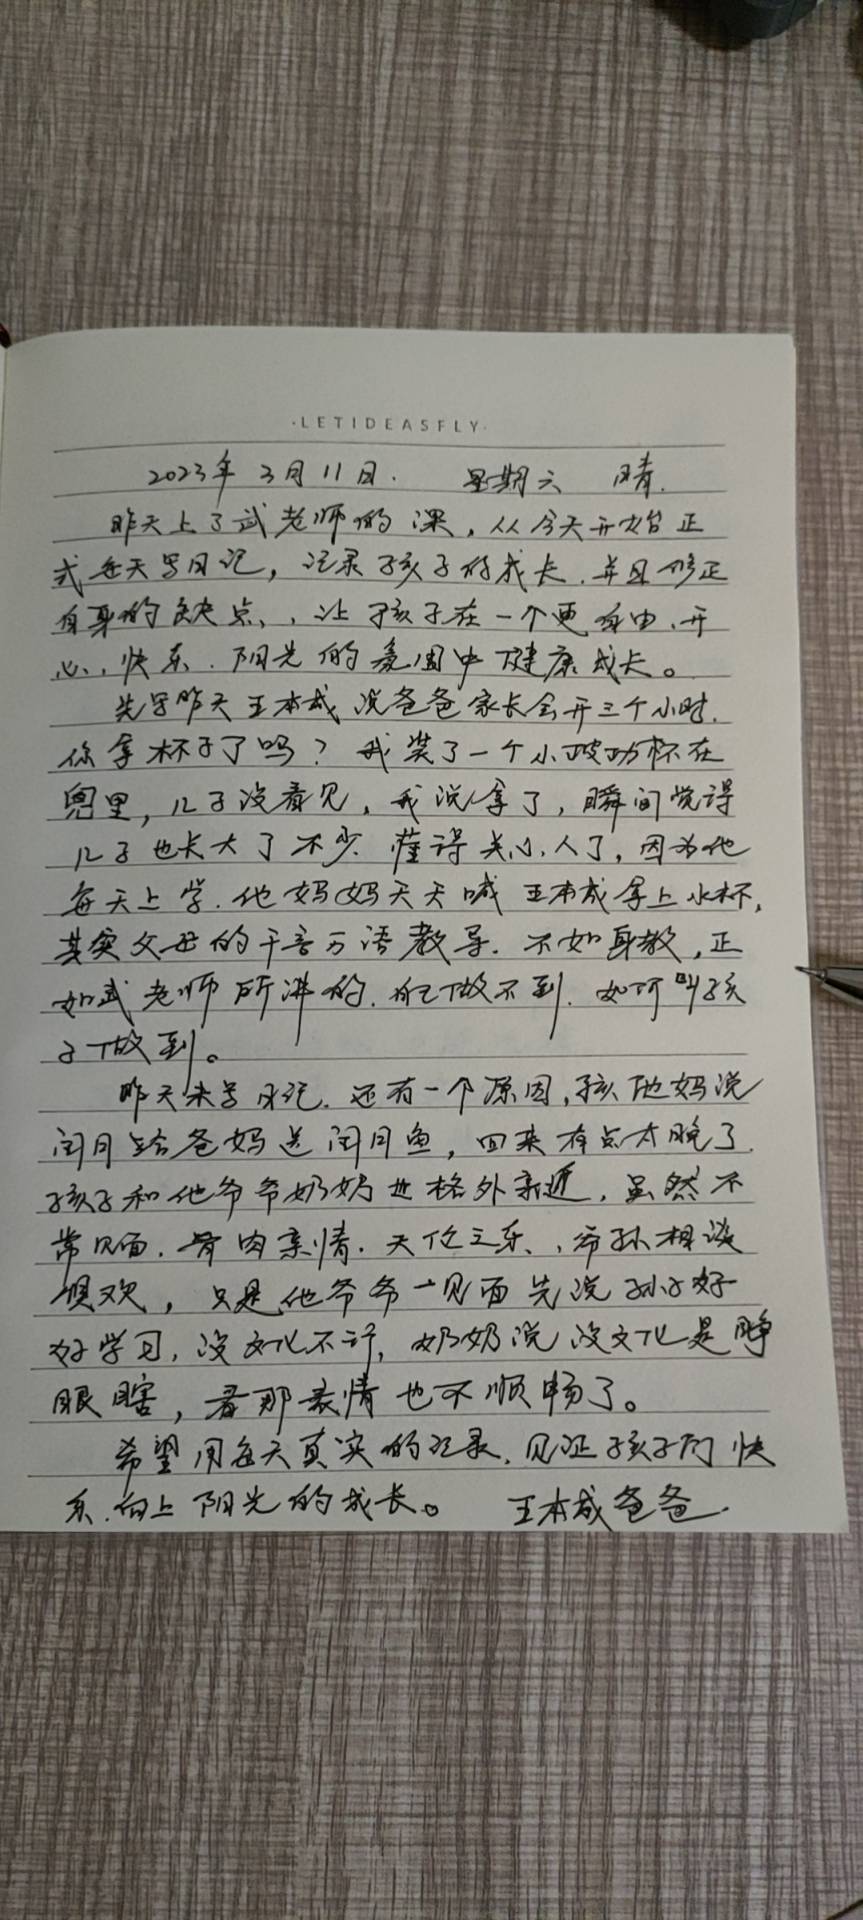 ·LETIDEASFLY·
2023年3月11日. 星期六 晴.
昨天上了武老师的课，从今天开始正
式每天写日记，记录孩子的成长.并且修正
自身的缺点、，让孩子在一个更自由、开
心、快乐.阳光的氛围中健康成长。
先写昨天王本成说爸爸家长会开三个小时.
你拿杯子了吗？我装了一个小玻功杯在
兜里，儿子没看见，我说拿了，瞬间觉得
儿子也长大了不少.懂得关心人了，因为他
每天上学.他妈妈天天喊王本成拿上水杯，
其实父母的千言万语教导.不如身教，正
如武老师所讲的.自己做不到.如何叫孩
子做到。
昨天未写日记.还有一个原因，孩他妈说
闰月给爸妈送闰月鱼，回来有点太晚了.
孩子和他爷爷奶奶也格外亲近，虽然不
常见面.骨肉亲情.天伦之乐、，爷孙相谈
俱欢，只是他爷爷一见面先说孙子好
好学习，没文化不行，奶奶说没文化是睁
眼瞎，看那表情也不顺畅了。
希望用每天真实的记录.见证孩子们快
乐.向上阳光的成长。 王本成爸爸.